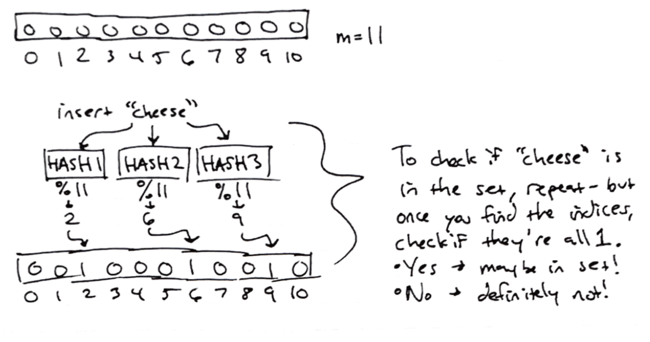 0 0 0 0 0 0 0 0 0 0 0
m=11
0 1 2 3 4 5 6 7 8 9 10
insert "cheese"
HASH1 HASH2 HASH3
%11 %11 %11
2 6 9
0 0 1 0 0 0 1 0 0 1 0
0 1 2 3 4 5 6 7 8 9 10
To check if "cheese" is
in the set, repeat - but
once you find the indices,
check if they're all 1.
• Yes → maybe in set!
• No → definitely not!